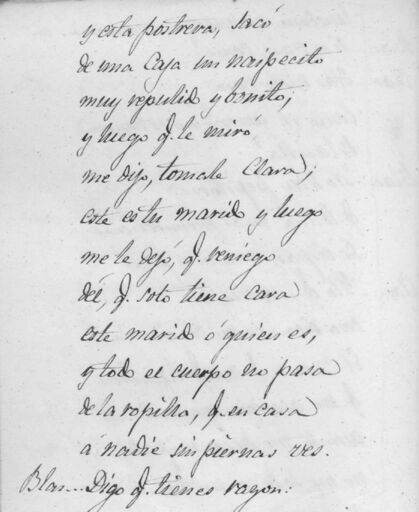 y esta postrera, sacó
de una Caja un naipecito
muy repulido y bonito,
y luego q.e le miró
me dijo, tomale Clara;
este es tu marido y luego
me le dejó, q.e reniego
dél, q.e solo tiene cara
este marido ó quien es,
y todo el cuerpo no pasa
de la ropilla, q.e en casa
á nadie sin piernas ves.
Blas... Digo q.e tienes razon: